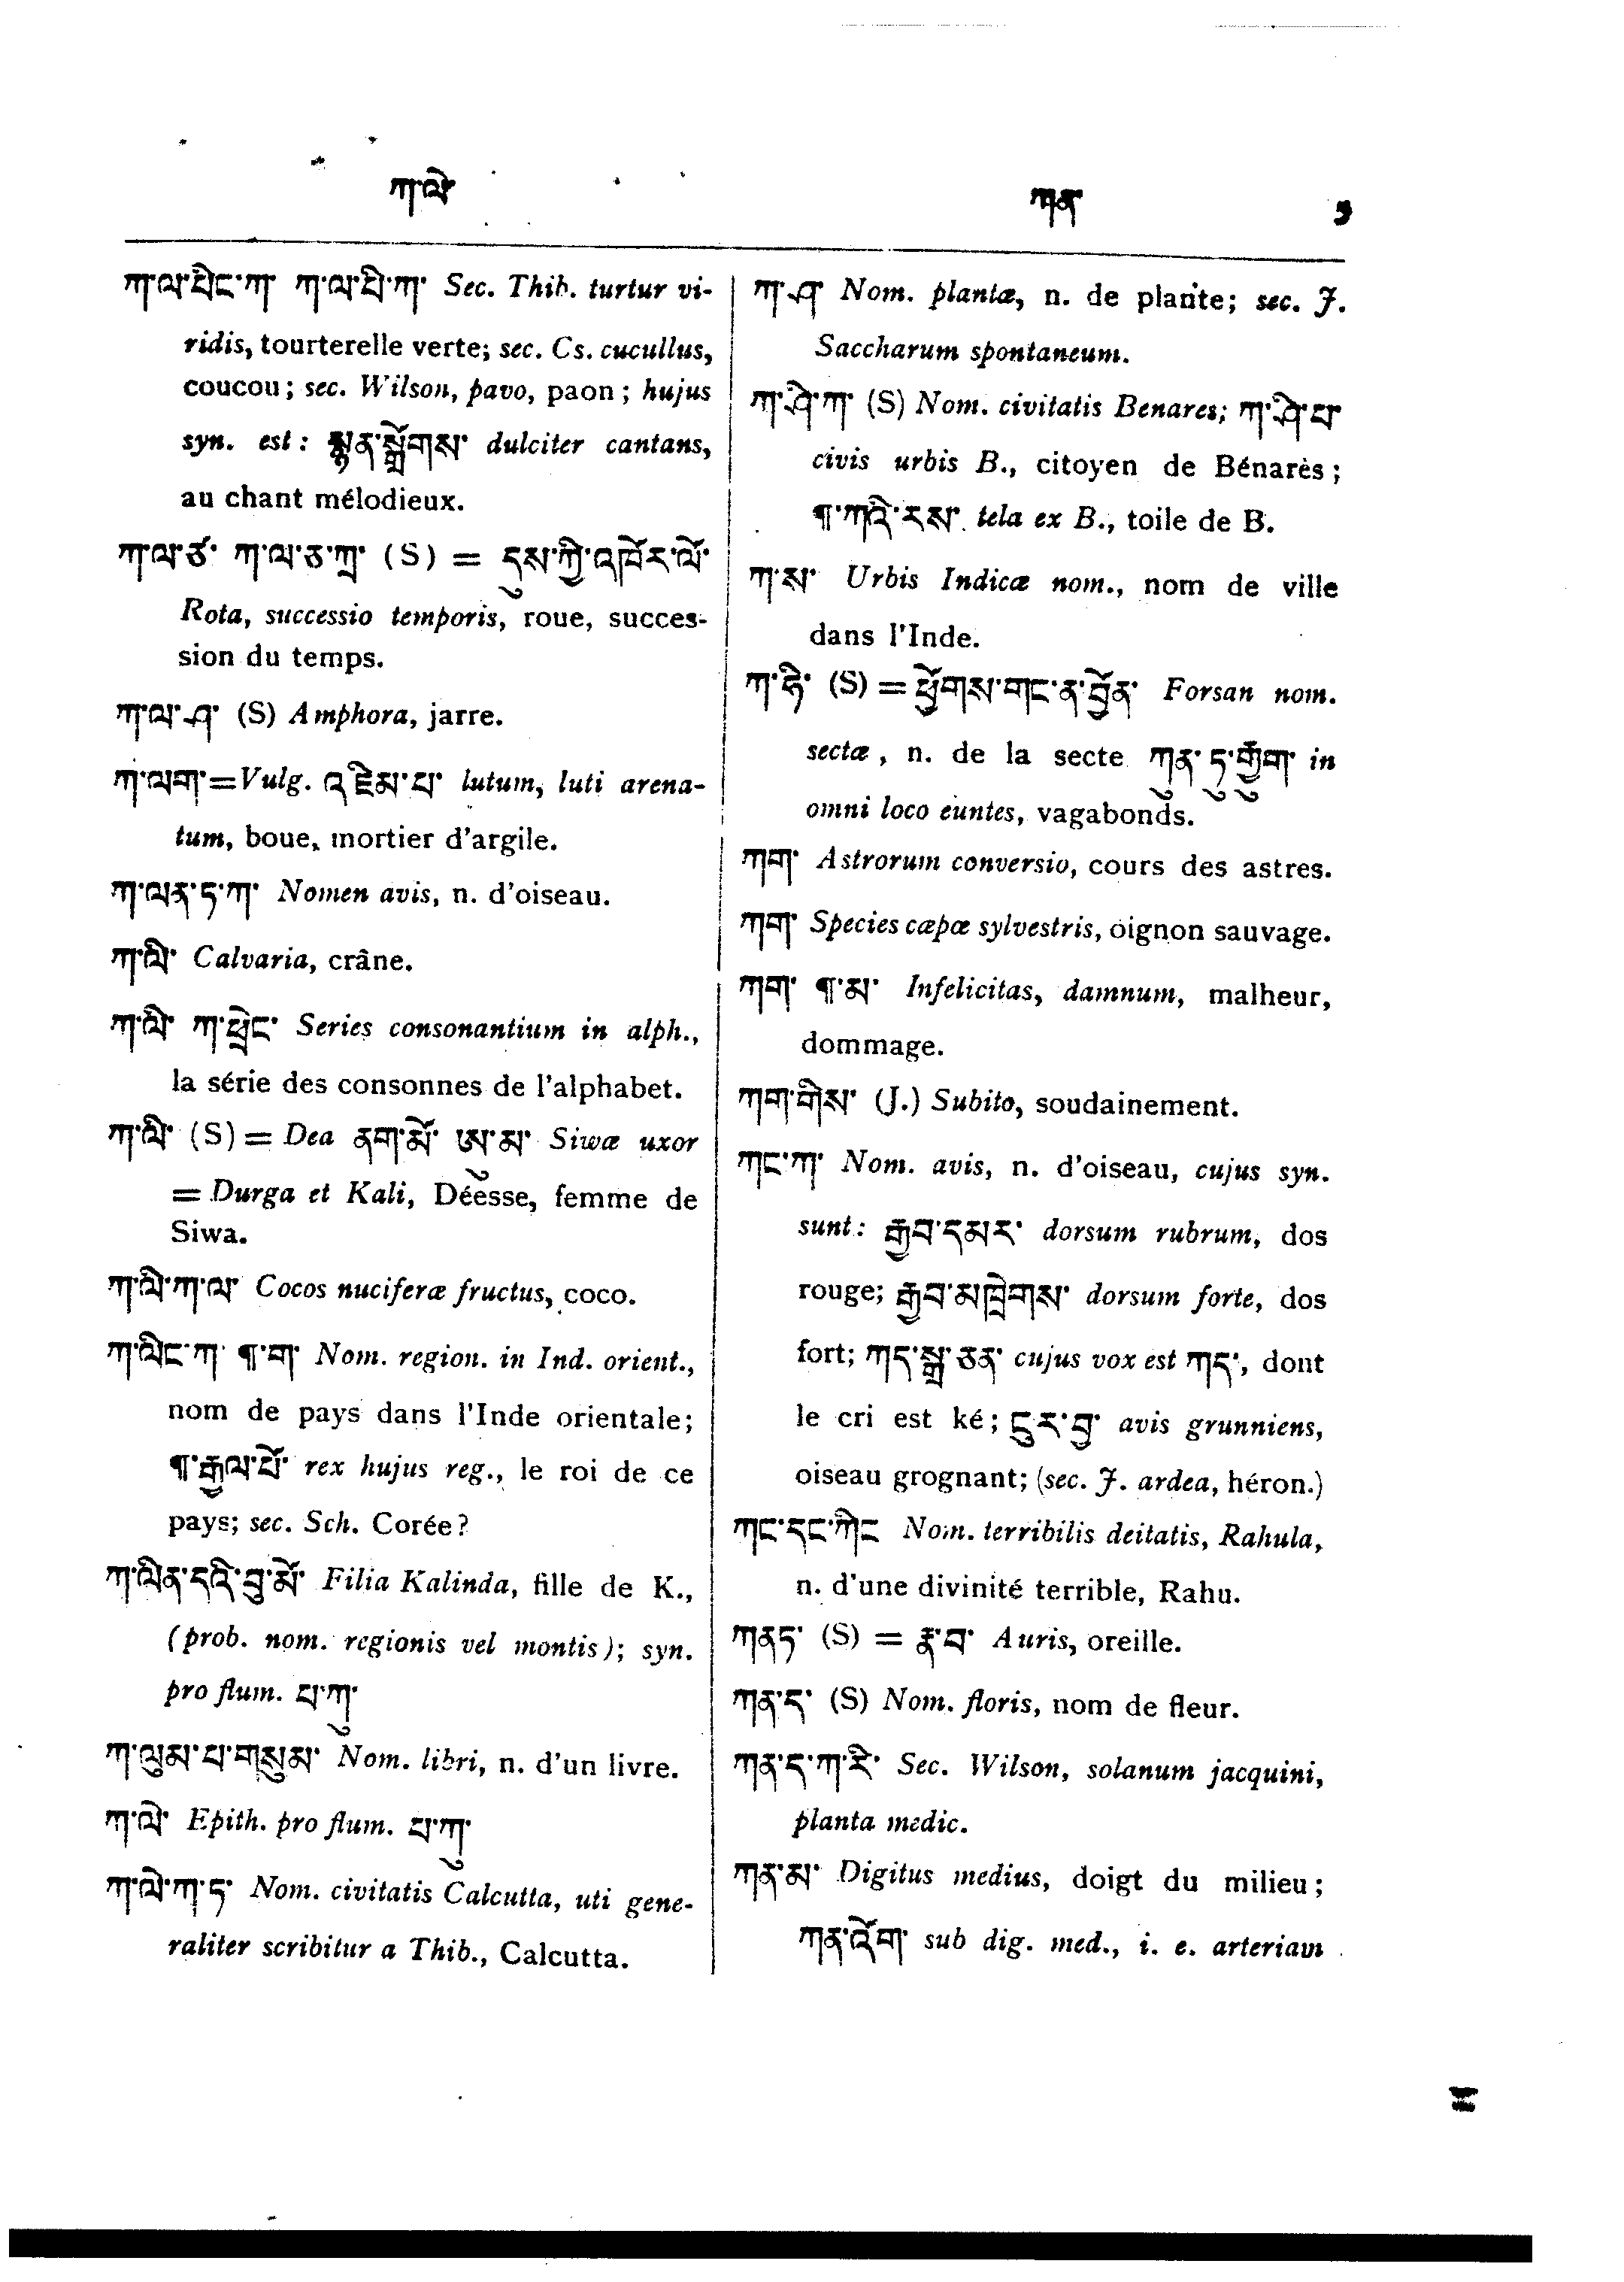 ཀ་ལེ་
ཀན་ 9
ཀ་ལ་པིང་ཀ་ ཀ་ལ་པི་ཀ་ Sec. Thib. turtur vi-
ridis, tourterelle verte; sec. Cs. cucullus,
coucou; sec. Wilson, pavo, paon; hujus
syn. est: སྙན་སྒྲོགས་ dulciter cantans,
au chant mélodieux.
ཀ་ལ་ཙ་ ཀ་ལ་ཅ་ཀྲ་ (S) = དུས་ཀྱི་འཁོར་ལོ་
Rota, successio temporis, roue, succes-
sion du temps.
ཀ་ལ་ཤ་ (S) Amphora, jarre.
ཀ་ལག་=Vulg. འཇིམ་པ་ lutum, luti arena-
tum, boue, mortier d'argile.
ཀ་ལན་ད་ཀ་ Nomen avis, n. d'oiseau.
ཀ་ལི་ Calvaria, crâne.
ཀ་ལི་ ཀ་ཕྲེང་ Series consonantium in alph.,
la série des consonnes de l'alphabet.
ཀ་ལི་ (S) = Dea ནག་མོ་ ཨུ་མ་ Siwæ uxor
= Durga et Kali, Déesse, femme de
Siwa.
ཀ་ལི་ཀ་ལ་ Cocos nuciferæ fructus, coco.
ཀ་ལིང་ཀ ¶་ག་ Nom. region. in Ind. orient.,
nom de pays dans l'Inde orientale;
¶་རྒྱལ་པོ་ rex hujus reg., le roi de ce
pays; sec. Sch. Corée?
ཀ་ལིན་དའི་བུ་མོ་ Filia Kalinda, fille de K.,
(prob. nom. regionis vel montis); syn.
pro flum. པ་ཀུ་
ཀ་ལུམ་པ་གསུམ་ Nom. libri, n. d'un livre.
ཀ་ལེ་ Epith. pro flum. པ་ཀུ་
ཀ་ལེ་ཀ་ཏ་ Nom. civitatis Calcutta, uti gene-
raliter scribitur a Thib., Calcutta.
ཀ་ཤ་ Nom. plantæ, n. de plante; sec. J.
Saccharum spontaneum.
ཀ་ཤི་ཀ་ (S) Nom. civitatis Benares; ཀ་ཤི་པ་
civis urbis B., citoyen de Bénarès;
¶་ཀའི་རས་ tela ex B., toile de B.
ཀ་ས་ Urbis Indicæ nom., nom de ville
dans l'Inde.
ཀ་ཧི་ (S) = ཕྱོགས་གང་ན་བྱོན་ Forsan nom.
sectæ, n. de la secte ཀུན་ཏུ་རྒྱུག་ in
omni loco euntes, vagabonds.
ཀག་ Astrorum conversio, cours des astres.
ཀག་ Species cæpæ sylvestris, oignon sauvage.
ཀག་ ¶་མ་ Infelicitas, damnum, malheur,
dommage.
ཀག་གིས་ (J.) Subito, soudainement.
ཀང་ཀ་ Nom. avis, n. d'oiseau, cujus syn.
sunt: རྒྱབ་དམར་ dorsum rubrum, dos
rouge; རྒྱབ་མཁྲེགས་ dorsum forte, dos
fort; ཀད་སྒྲ་ཅན་ cujus vox est ཀད་, dont
le cri est ké; ངུར་བྱ་ avis grunniens,
oiseau grognant; (sec. J. ardea, héron.)
ཀང་དང་ཀིང Nom. terribilis deitatis, Rahula,
n. d'une divinité terrible, Rahu.
ཀནཏ་ (S) = རྣ་བ་ Auris, oreille.
ཀན་ད་ (S) Nom. floris, nom de fleur.
ཀན་ད་ཀ་རི་ Sec. Wilson, solanum jacquini,
planta medic.
ཀན་མ་ Digitus medius, doigt du milieu;
ཀན་འོག་ sub dig. med., i. e. arteriam